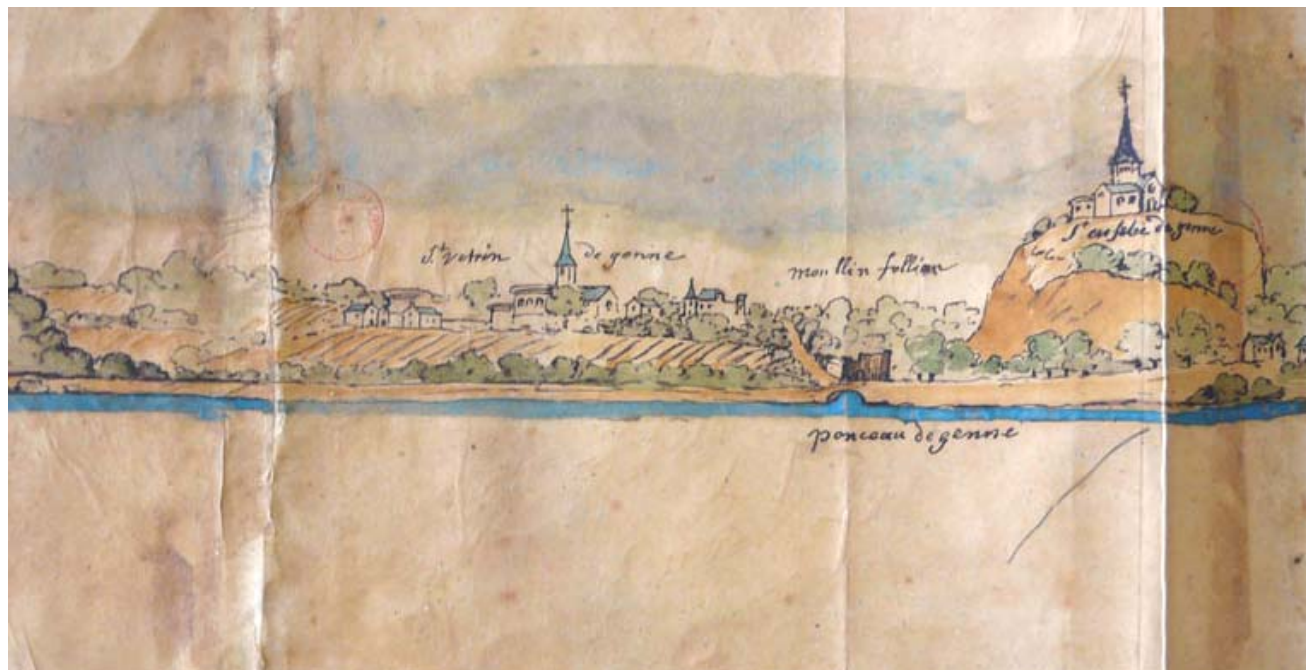 St Vetrin de genne
moullin follian
St eusebe de genne
ponceau de genne